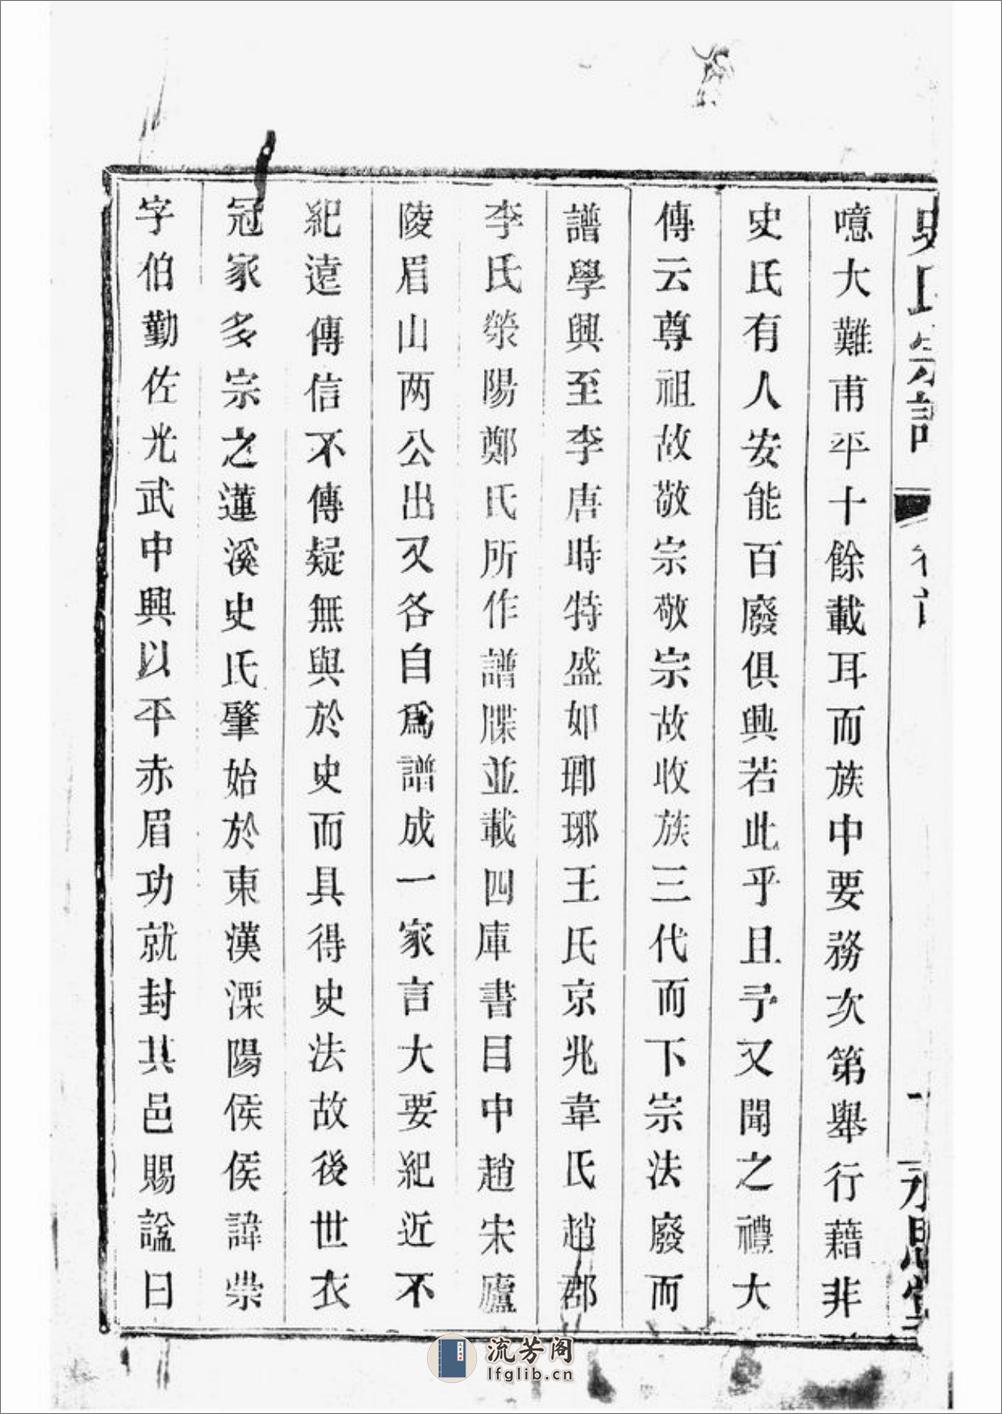 史氏宗譜 卷首 一 永思堂
噫大難甫平十餘載耳而族中要務次第舉行藉非
史氏有人安能百廢俱興若此乎且予又聞之禮大
傳云尊祖故敬宗敬宗故收族三代而下宗法廢而
譜學興至李唐時特盛如瑯琊王氏京兆韋氏趙郡
李氏滎陽鄭氏所作譜牒並載四庫書目中趙宋廬
陵眉山两公出又各自爲譜成一家言大要紀近不
紀遠傳信不傳疑無與於史而具得史法故後世衣
冠家多宗之蓮溪史氏肇始於東漢溧陽侯侯諱崇
字伯勤佐光武中興以平赤眉功就封其邑賜諡曰
流芳阁
lfglib.cn